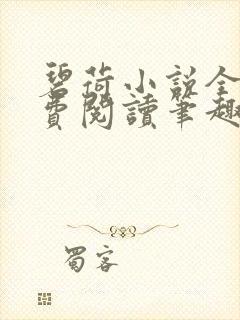 碧荷小説全
費閱讀筆趣
蜀客